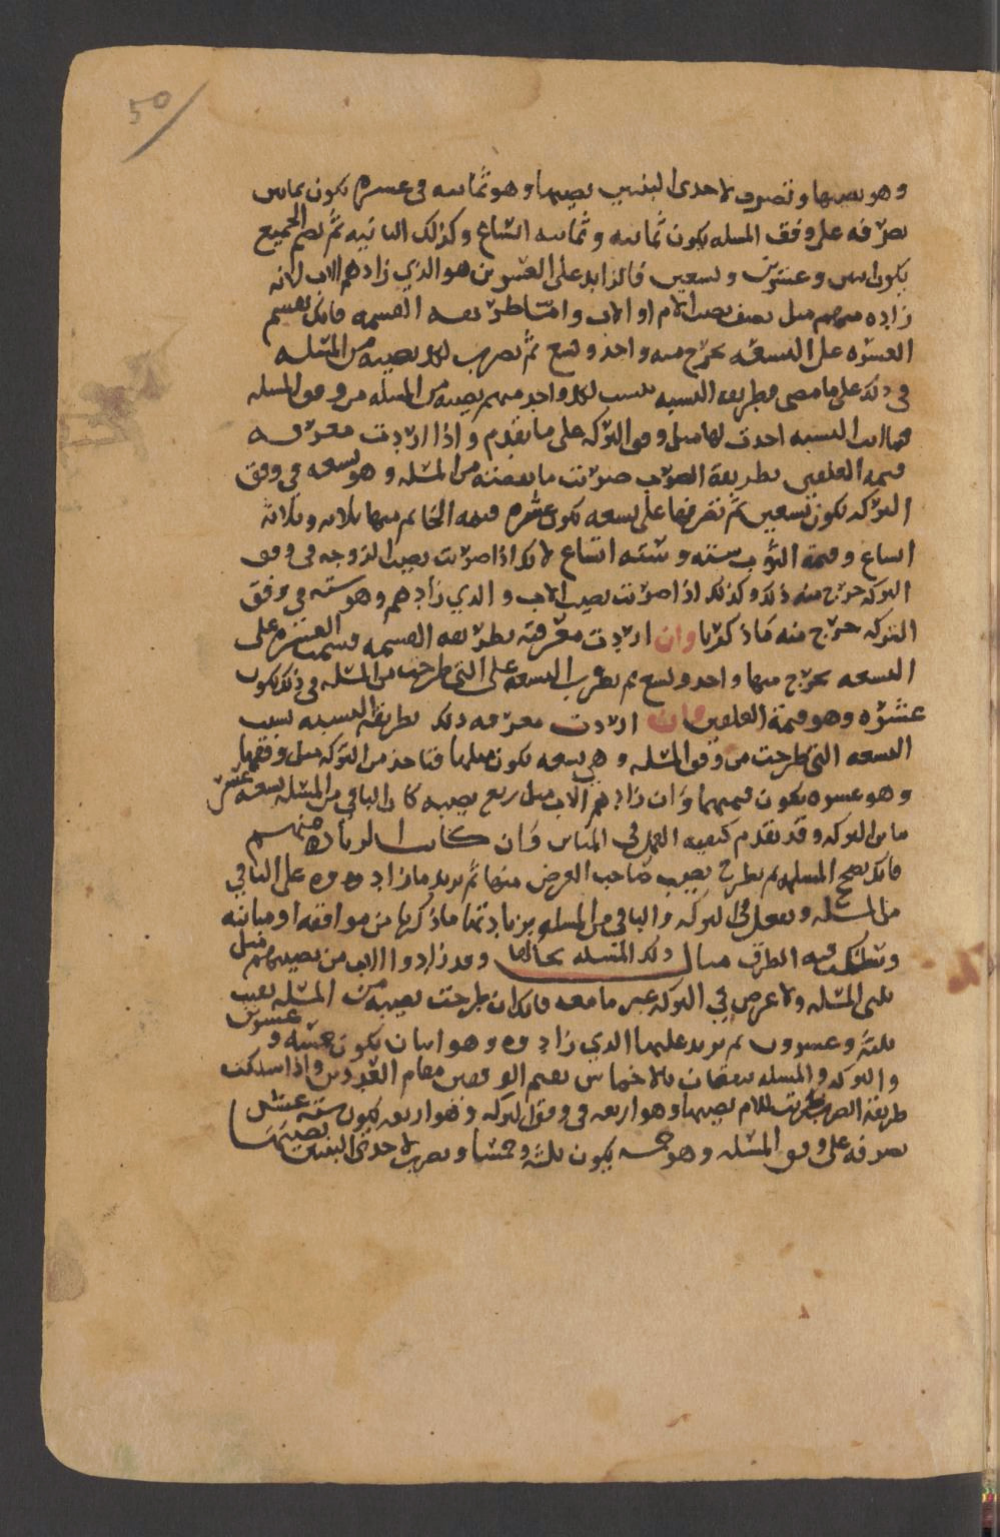 50
وهو نصيبها وتضرب لاحدى البنتين نصيبها وهو ثمانيه في عشره يكون ثمانين
تصرفه على وفق المسله يكون ثمانيه وثمانيه اتساع وكذلك الثانيه ثم تضم الجميع
يكون اثنين وعشرين وتسعين فالزايد على العشرين هو الذي زادهم الاب لانه
زاده منهم مثل نصف نصيب الام او الاب واما طريقه القسمه فانك تقسم
العشره على التسعه يخرج منه واحد وتسع ثم تضرب لكل نصيبه من المسله
في ذلك على ما مضى وطريقه النسبه تنسب لكل واحد منهم نصيبه من المسله من وفق المسله
فما اتت النسبه اخذت لها مثل وفق التركه على ما تقدم واذا اردت معرفه
قيمه بطريقة الضرب ضربت ما نقصته من المسله وهو تسعه في وفق
التركه يكون تسعين ثم تفرضها على تسعه يكون عشره قيمه الخاتم منها ثلاثه وثلاثة
اتساع وقيمة الثوب سته وسته اتساع لانك اذا ضربت نصيب الزوجه في وفق
التركه خرج منه ذلك وكذلك اذا ضربت نصيب الاب والذي زادهم وهو سته في وفق
التركه خرج منه ما ذكرنا وان اردت معرفته بطريقه القسمه قسمت العشره على
التسعه يخرج منها واحد وتسع ثم تضرب التسعه على التي طرحت من المسله في ذلك يكون
عشره وهو قيمة وان اردت معرفه ذلك بطريقه النسبه نسبت
التسعه التي طرحت من وفق المسله وهي تسعه يكون مثلها فتاخذ من التركه مثل وفقها
وهو عشره يكون قيمتهما وان زادهم الاب مثل ربع نصيبه كان الباقي من المسله تسعه عشر
من التركه وقد تقدم كيفيه العمل في وان كانت الزياده منهم
فانك تصحح المسله ثم تطرح نصيب صاحب العرض منها ثم تزيد ما زادوه على الباقي
من المسله وتعمل في التركه والباقي من المسله بزيادتها ما ذكرنا من موافقه او مباينه
وتسلك فيه الطرق مثال ذلك المسله بحالها وقد زادوا الاب من نصيبهم مثل
ثلثي المسله ولا عرض في التركه غير ما معه فانك ان طرحت نصيبه من المسله بقيت
ثلثه وعشرون ثم تزيد عليها الذي زادوه وهو اثنان يكون خمسه وعشرين
والتركه والمسله يتفقان بالاخماس تقيم الوفقين مقام العددين واذا سلكت
طريقة الضرب ضربت للام نصيبها وهو اربعه في وفق التركه وهو اربعه يكون سته عشر
تصرفه على وفق المسله وهو خمسه يكون ثلثه وخمسا وتضرب لاحدى البنتين نصيبها